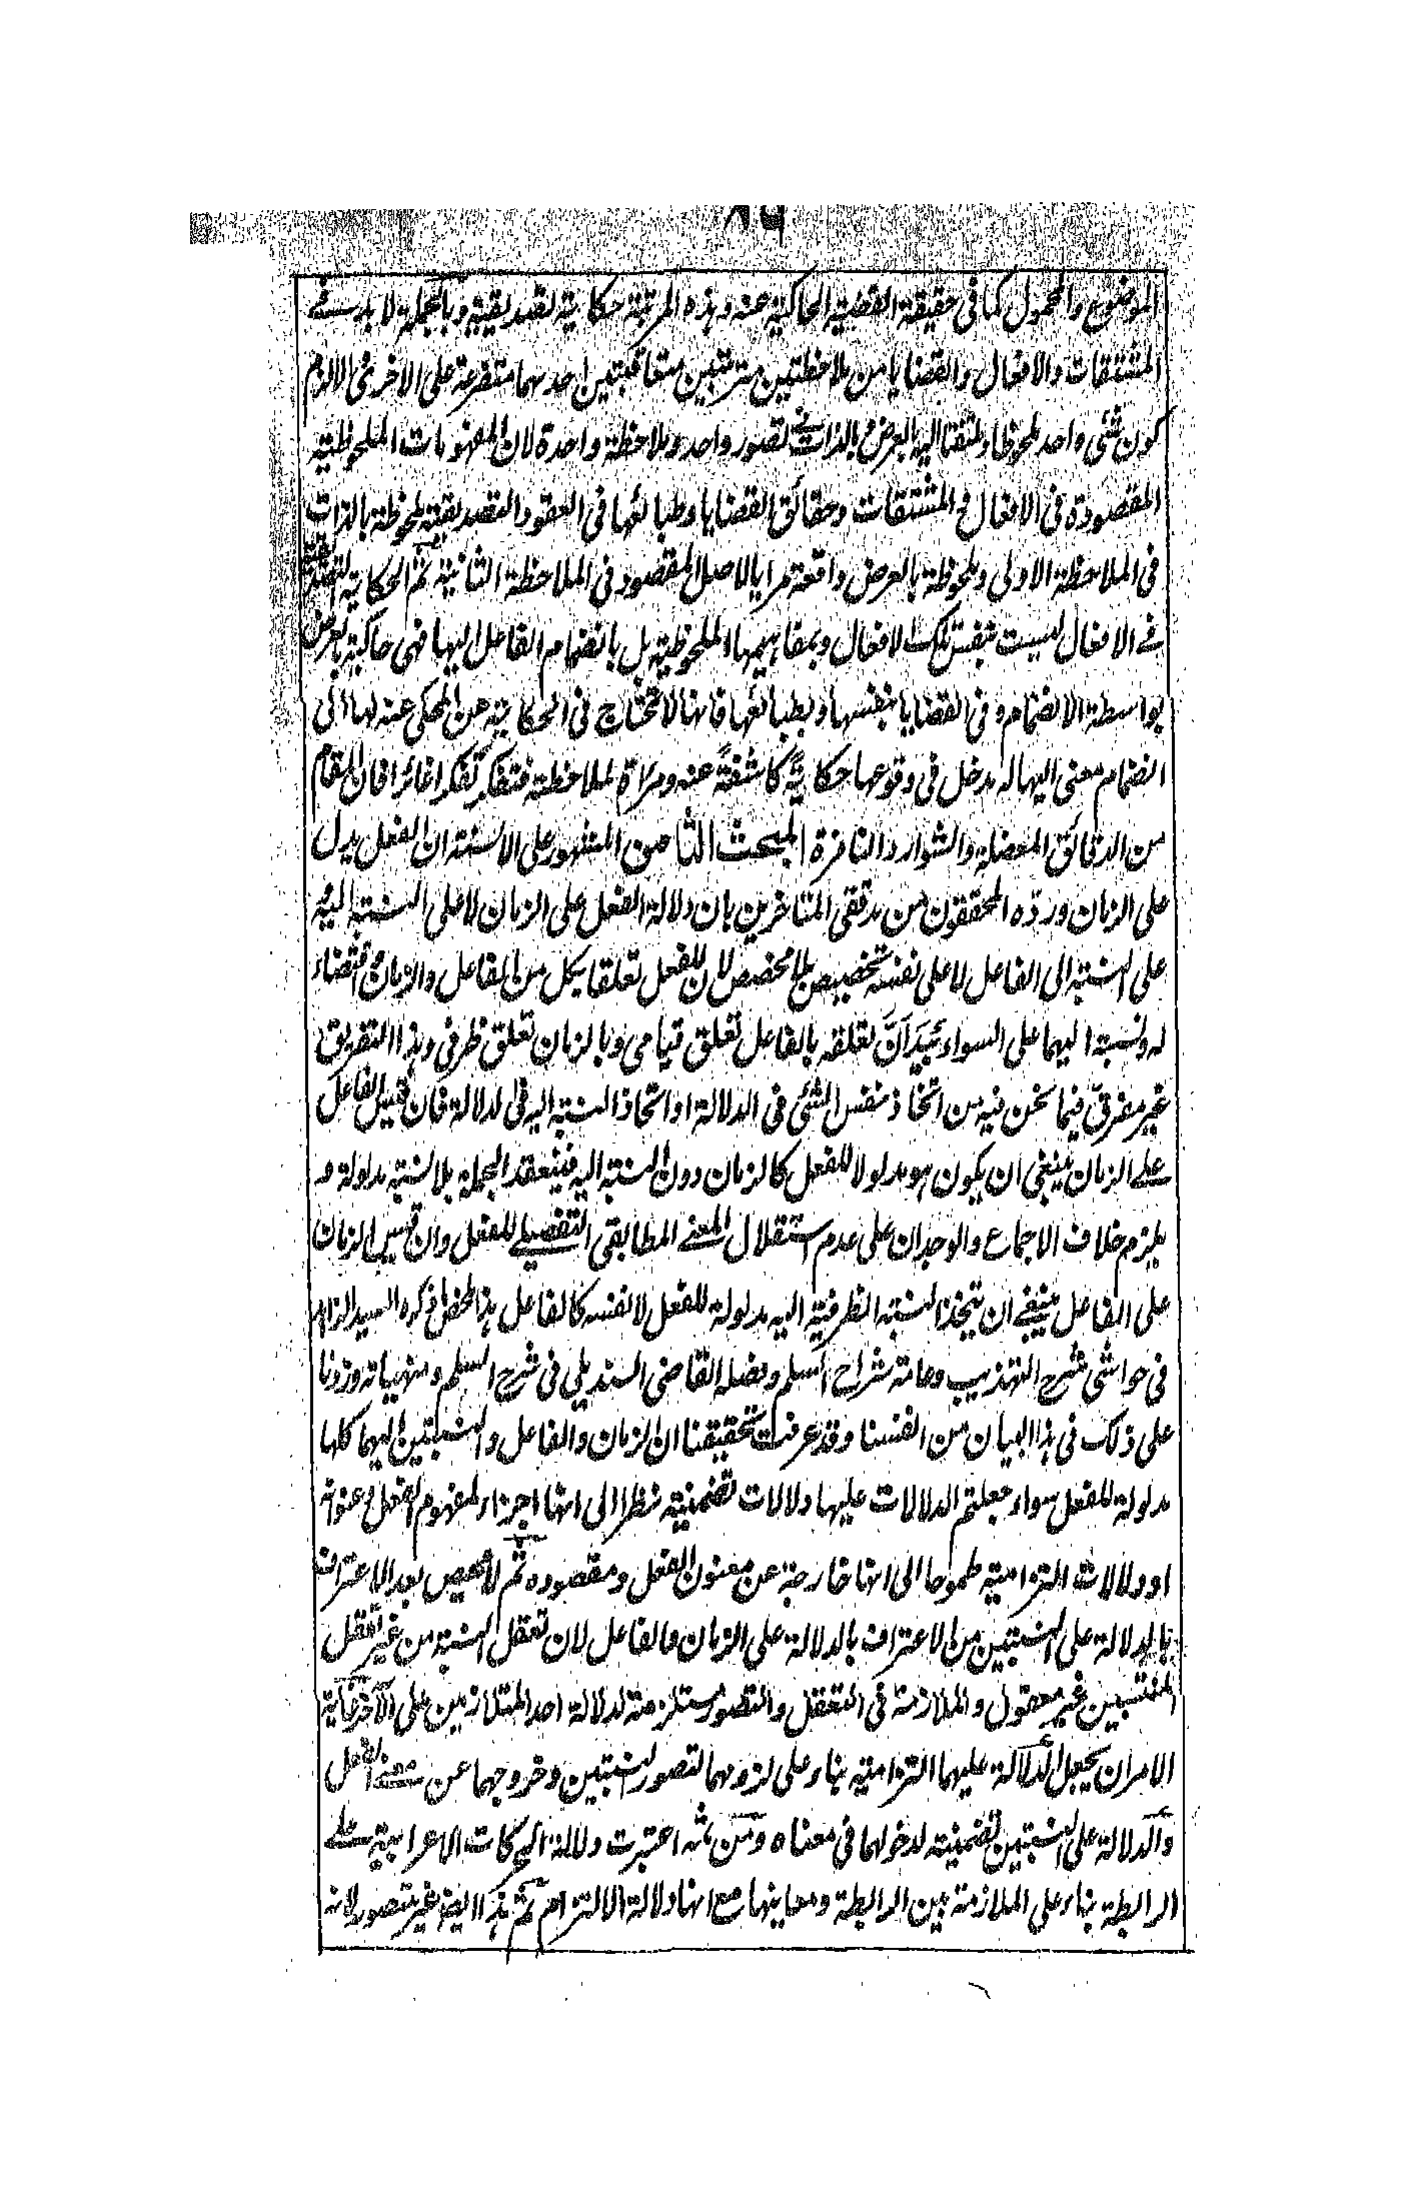 ٨٥
الموضوع والمحمول كما فى حقيقة القضية الحاكية عنه وهذه المرتبة حكاية تصديقية وبالجملة لا بد فے
المشتقات والافعال والقضايا من ملاحظتين مترتبتين متعاقبتين احدهما متفرعة على الاخرى والالزم
كون شئ واحد ملحوظا وملتفتا اليه بالعرض وبالذات فے تصور واحد وملاحظة واحدة لان المفهومات الملحوظية
المقصودة فى الافعال والمشتقات وحقائق القضايا وطبائعها فى العقود التصديقية ملحوظة بالذات
فى الملاحظة الاولى وملحوظة بالعرض واقعة مرايا لاصل المقصود فى الملاحظة الثانية ثم الحكاية التصديقية
فے الافعال ليست بنفس تلك الافعال وبمفاهيمها الملحوظية بل بانضمام الفاعل اليها فهى حاكية بالعرض
بواسطة الانضمام وفى القضايا بنفسها وبطبائعها فانها لا تحتاج فى الحكاية عن المحكى عنه لها الى
انضمام معنى اليها له مدخل فى وقوعها حكاية كاشفة عنه ومرآة لملاحظته فتفكر تفكرا غائرا فان المقام
من الدقائق المعضلة والشوارد النافرة المبحث الثامن المشهور على الالسنة ان الفعل يدل
على الزمان ورده المحققون من مدققى المتاخرين بان دلالة الفعل على الزمان لا على النسبة اليه
على النسبة الى الفاعل لا على نفسه تخصيص بلا مخصص لان للفعل تعلقا بكل من الفاعل والزمان واقتضاء
له ونسبة اليهما على السواء بيد ان تعلقه بالفاعل تعلق قيامى وبالزمان تعلق ظرفى وهذا التفريق
غير مفرق فيما نحن فيه من اتخاذ نفس الشئ فى الدلالة او اتخاذ النسبة اليه فى الدلالة فان قيس الفاعل
علے الزمان ينبغى ان يكون هو مدلولا للفعل كالزمان دون النسبة اليه فينعقد الجملة بلا نسبة مدلولة و
يلزم خلاف الاجماع والوجدان على عدم استقلال المعنے المطابقى التفصيلے للفعل وان قيس الزمان
على الفاعل ينبغے ان يتخذ النسبة الظرفية اليه مدلولة للفعل لا نفسه كالفاعل هذا ملخص ما ذكره السيد الزاهد
فى حواشى شرح التهذيب وعامة شراح السلم وفصله القاضى السنديلى فى شرح السلم ومنهياته وزدنا
على ذلك فى هذا البيان من انفسنا وقد عرفت بتحقيقنا ان الزمان والفاعل والنسبتين اليهما كلها
مدلولة للفعل سواء جعلتم الدلالات عليها دلالات تضمنية نظرا الى انها اجزاء لمفهوم الفعل وعنوانه
او دلالات التزامية طموحا الى انها خارجة عن معنون الفعل ومقصوده ثم لا محيص بعد الاعتراف
بالدلالة على النسبتين من الاعتراف بالدلالة على الزمان والفاعل لان تعقل النسبة من غير تعقل
المنتسبين غير معقول والملازمة فى التعقل والتصور مستلزمة لدلالة احد المتلازمين على الآخر غاية
الامر ان يجعل الدلالة عليهما التزامية بناء على لزومهما لتصور النسبتين وخروجهما عن معنے الفعل
والدلالة على النسبتين تضمنية لدخولهما فى معناه ومن ثمه اعتبرت دلالة الحركات الاعرابية علے
الرابطة بناء على الملازمة بين الرابطة ومعاينها مع انها دلالة الالتزام ثم هذا ايضا غير متصور لانه